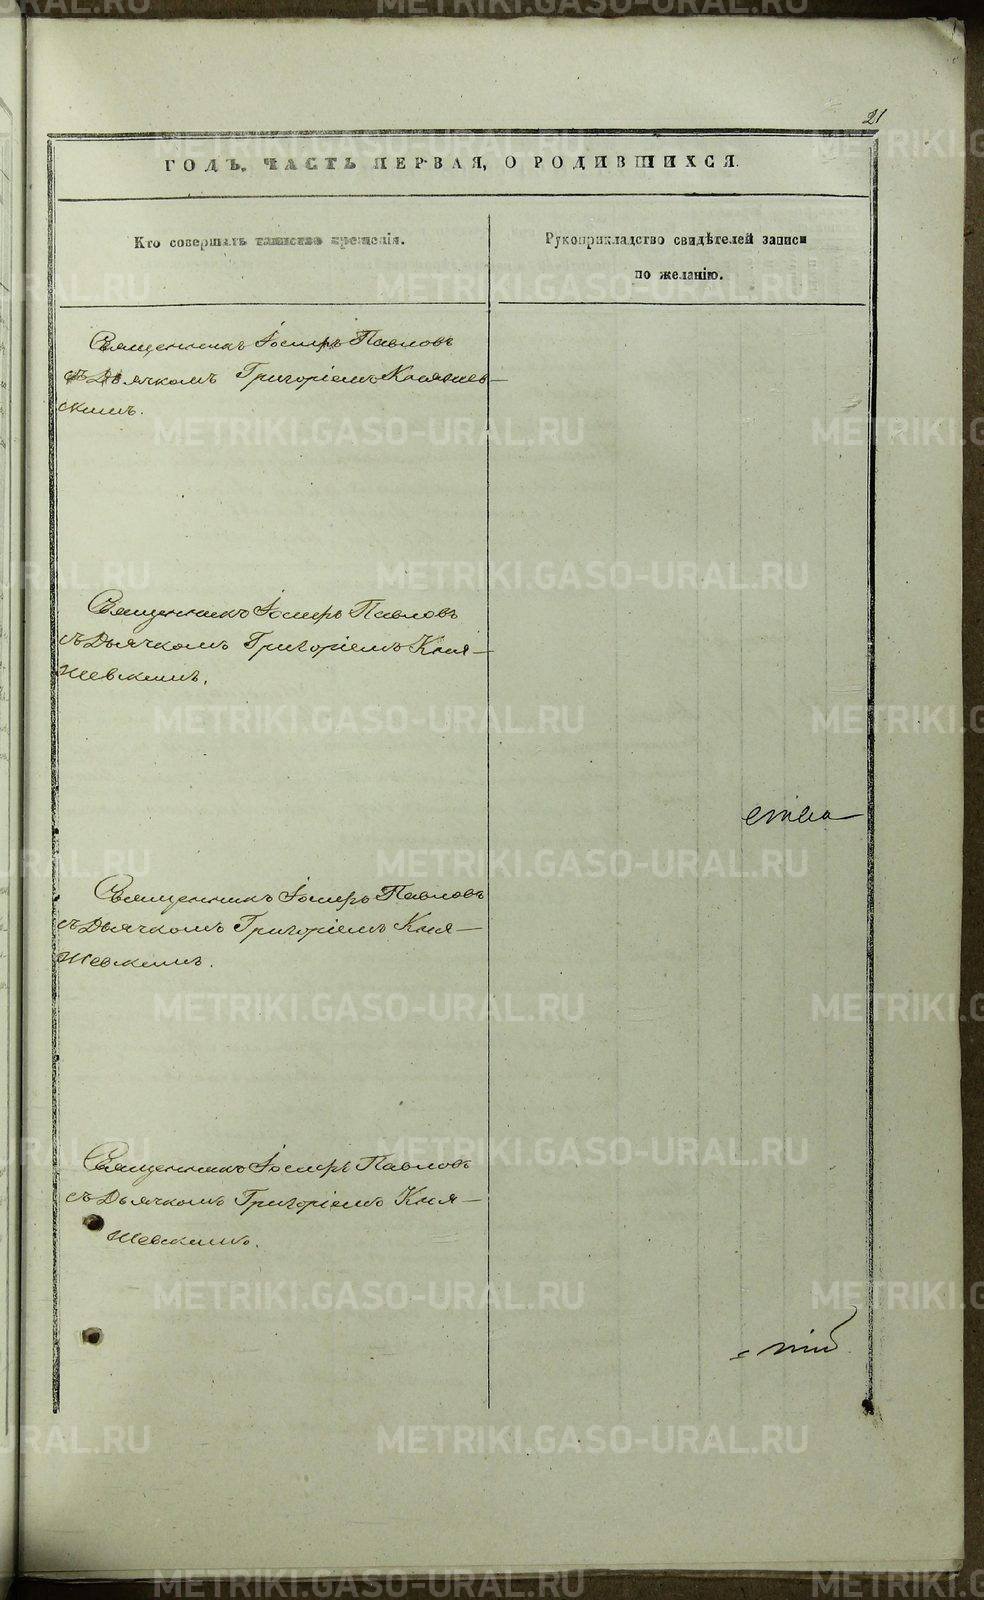 21
ГОДЪ, ЧАСТЬ ПЕРВАЯ, О РОДИВШИХСЯ.
Кто совершалъ таинство крещенія.
Рукоприкладство свидѣтелей записи
по желанію.
Священникъ Іосифъ Павловъ
съ Дьячкомъ Григоріемъ Княжев-
скимъ.
Священникъ Іосифъ Павловъ
съ Дьячкомъ Григоріемъ Кня-
жевскимъ.
ства
Священникъ Іосифъ Павловъ
съ Дьячкомъ Григоріемъ Кня-
жевскимъ.
Священникъ Іосифъ Павловъ
съ Дьячкомъ Григоріемъ Кня-
жевскимъ.
METRIKI.GASO-URAL.RU